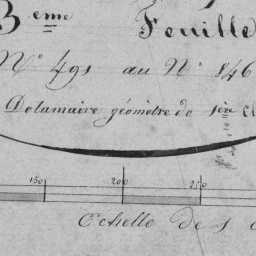 3.eme Feuille
N° 491 au N° 846
Delamaire géomètre de 1ère Cl
150 200 250
Echelle de 1 à